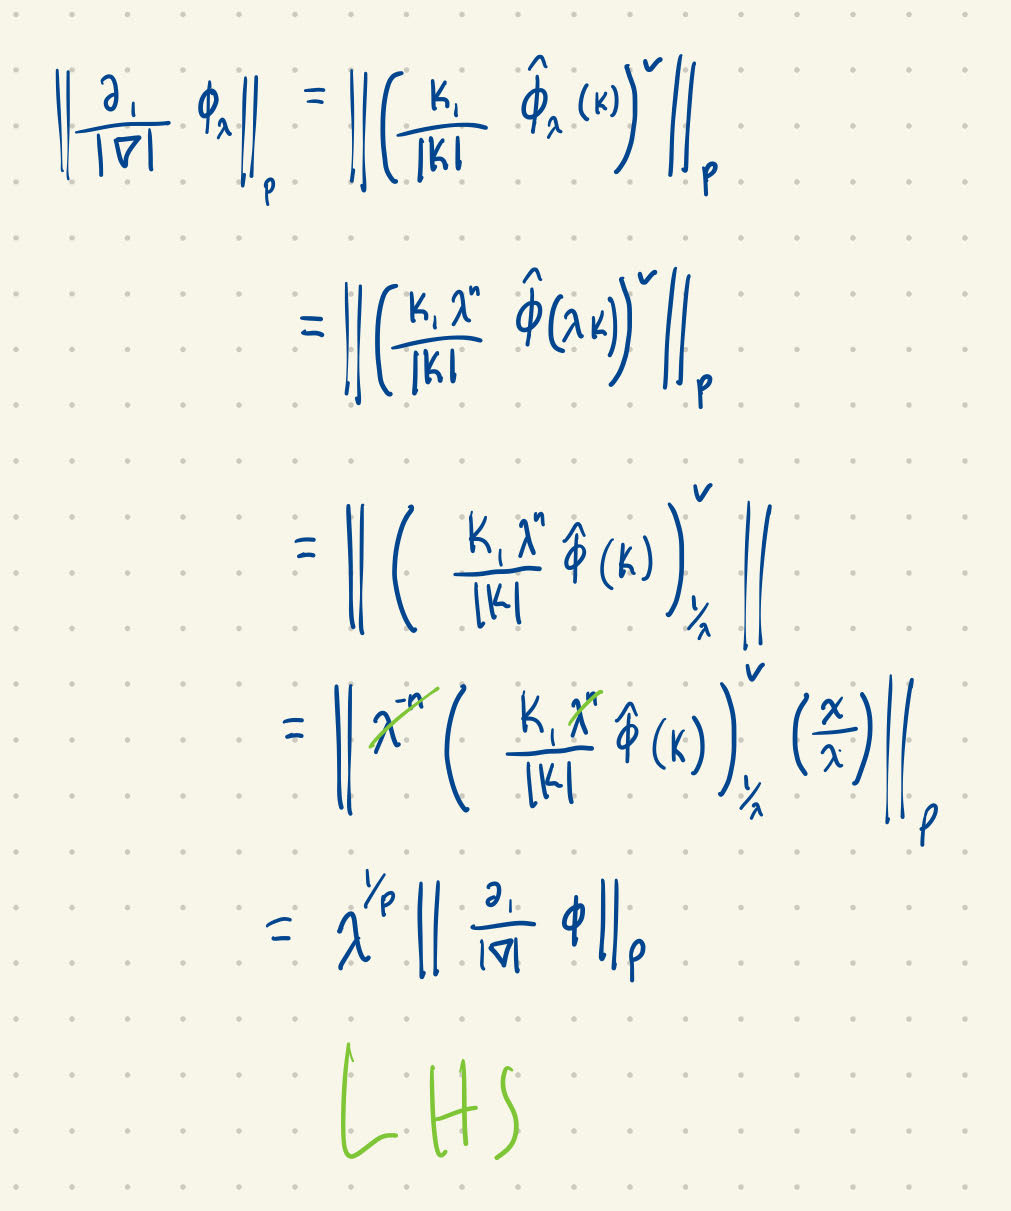 ‖ ∂₁/|∇| ϕ_λ ‖_p = ‖ ( K₁/|K| ϕ̂_λ (K) )^∨ ‖_p
= ‖ ( K₁ λⁿ/|K| ϕ̂(λK) )^∨ ‖_p
= ‖ ( K₁ λⁿ/|K| ϕ̂ (K) )^∨_{1/λ} ‖
= ‖ λ⁻ⁿ ( K₁ λⁿ/|K| ϕ̂ (K) )^∨_{1/λ} (x/λ) ‖_p
= λ^{1/p} ‖ ∂₁/|∇| ϕ ‖_p
LHS